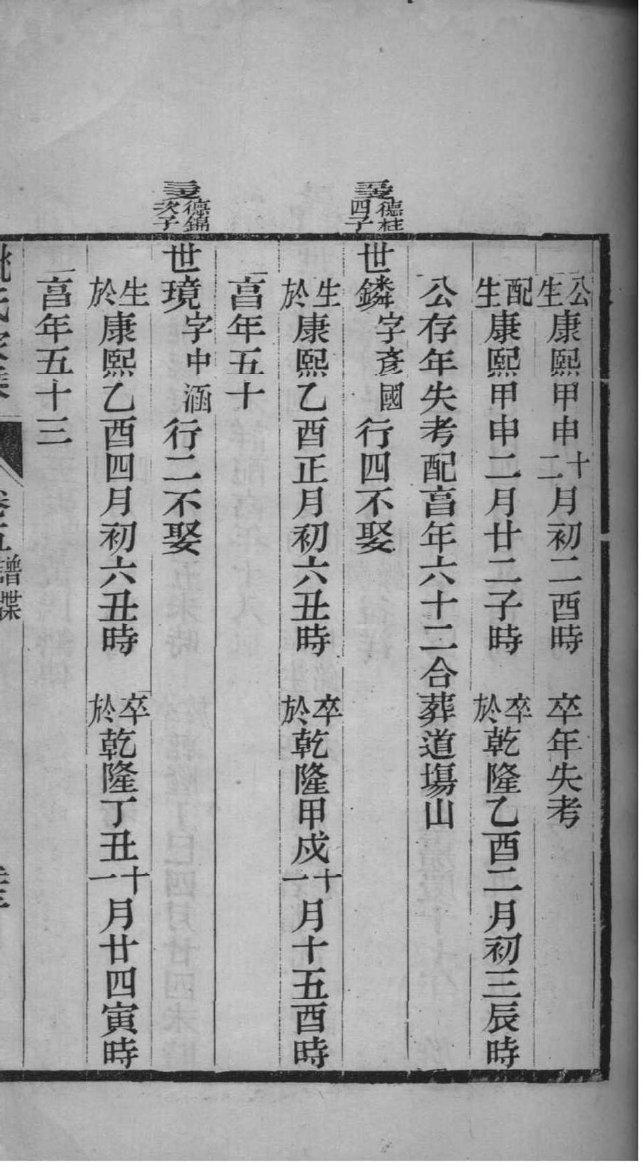 公生康熙甲申十二月初二酉時 卒年失考
配生康熙甲申二月廿二子時 卒於乾隆乙酉二月初三辰時
公存年失考配亯年六十二合葬道塲山
德桂四子
世鏻字彥國行四不娶
生於康熙乙酉正月初六丑時 卒於乾隆甲戌十一月十五酉時
亯年五十
德錦次子
世璄字中涵行二不娶
生於康熙乙酉四月初六丑時 卒於乾隆丁丑十一月廿四寅時
亯年五十三
姚氏家乘 卷五譜牒